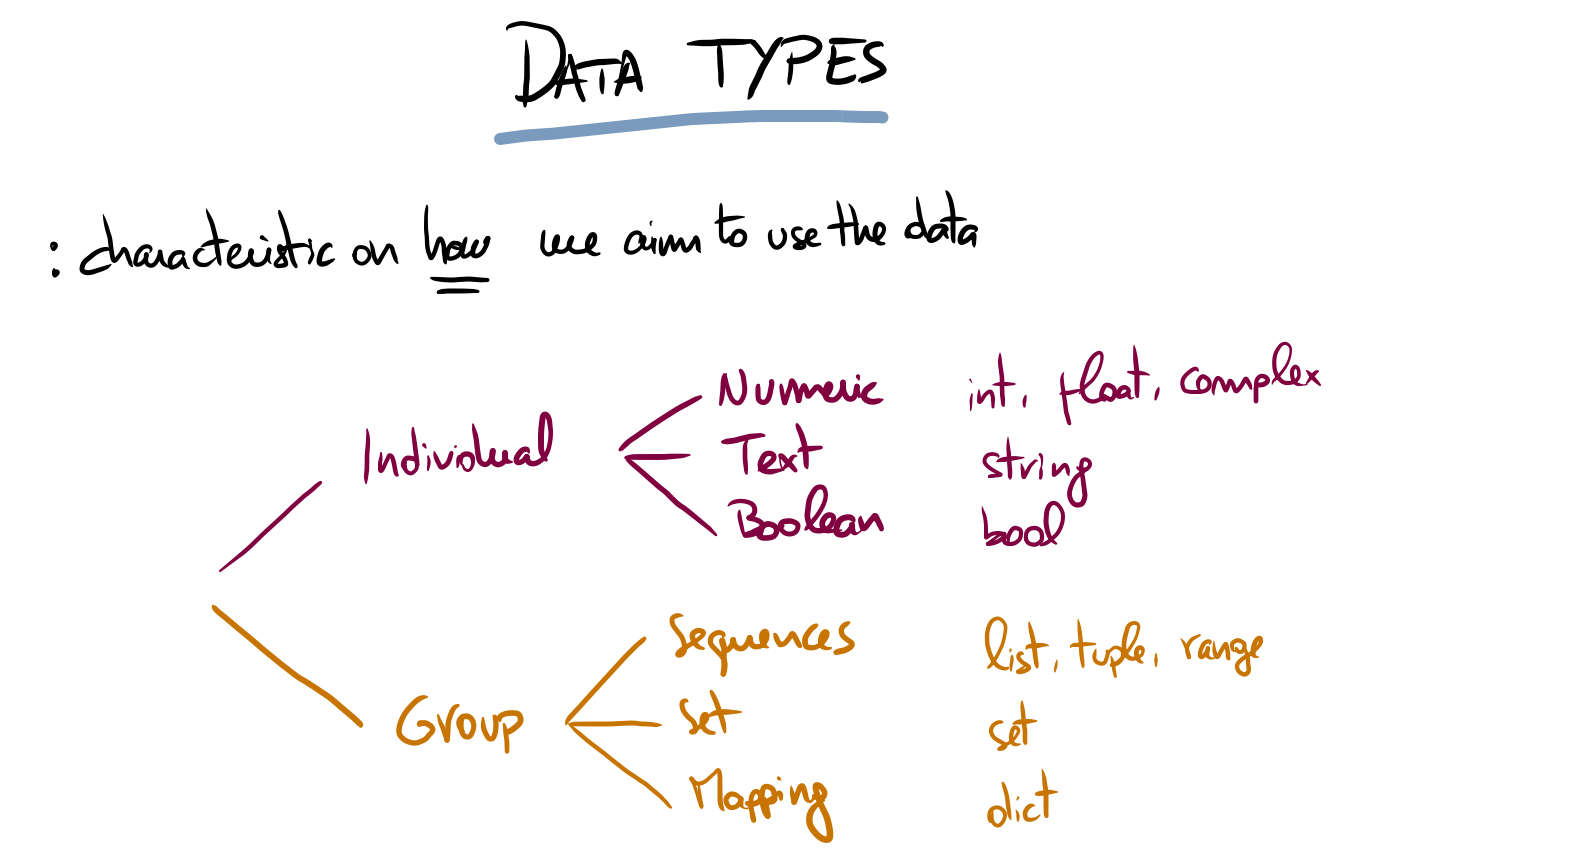 DATA TYPES
: characteristic on how we aim to use the data
Individual
Numeric int, float, complex
Text string
Boolean bool
Group
Sequences list, tuple, range
Set set
Mapping dict